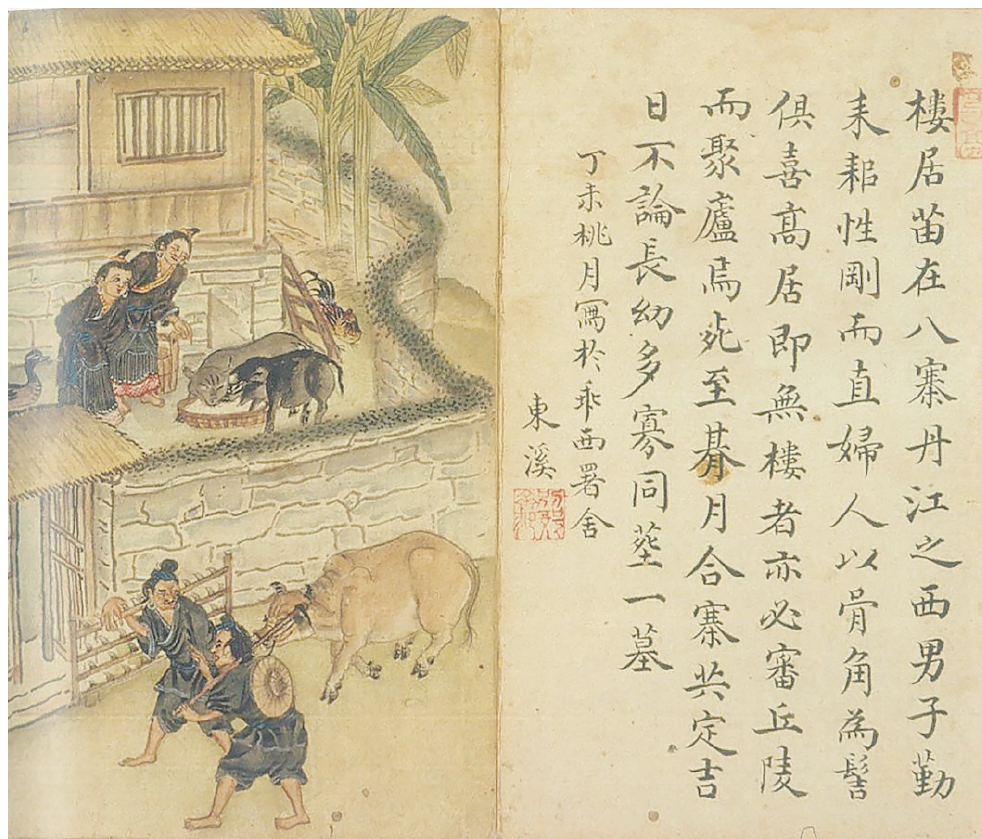 樓居苗在八寨丹江之西男子勤
耒耜性剛而直婦人以骨角為髻
俱喜高居即無樓者亦必審丘陵
而聚廬焉死至朞月合寨共定吉
日不論長幼多寡同塟一墓
丁未桃月寫於乖西署舍
東溪